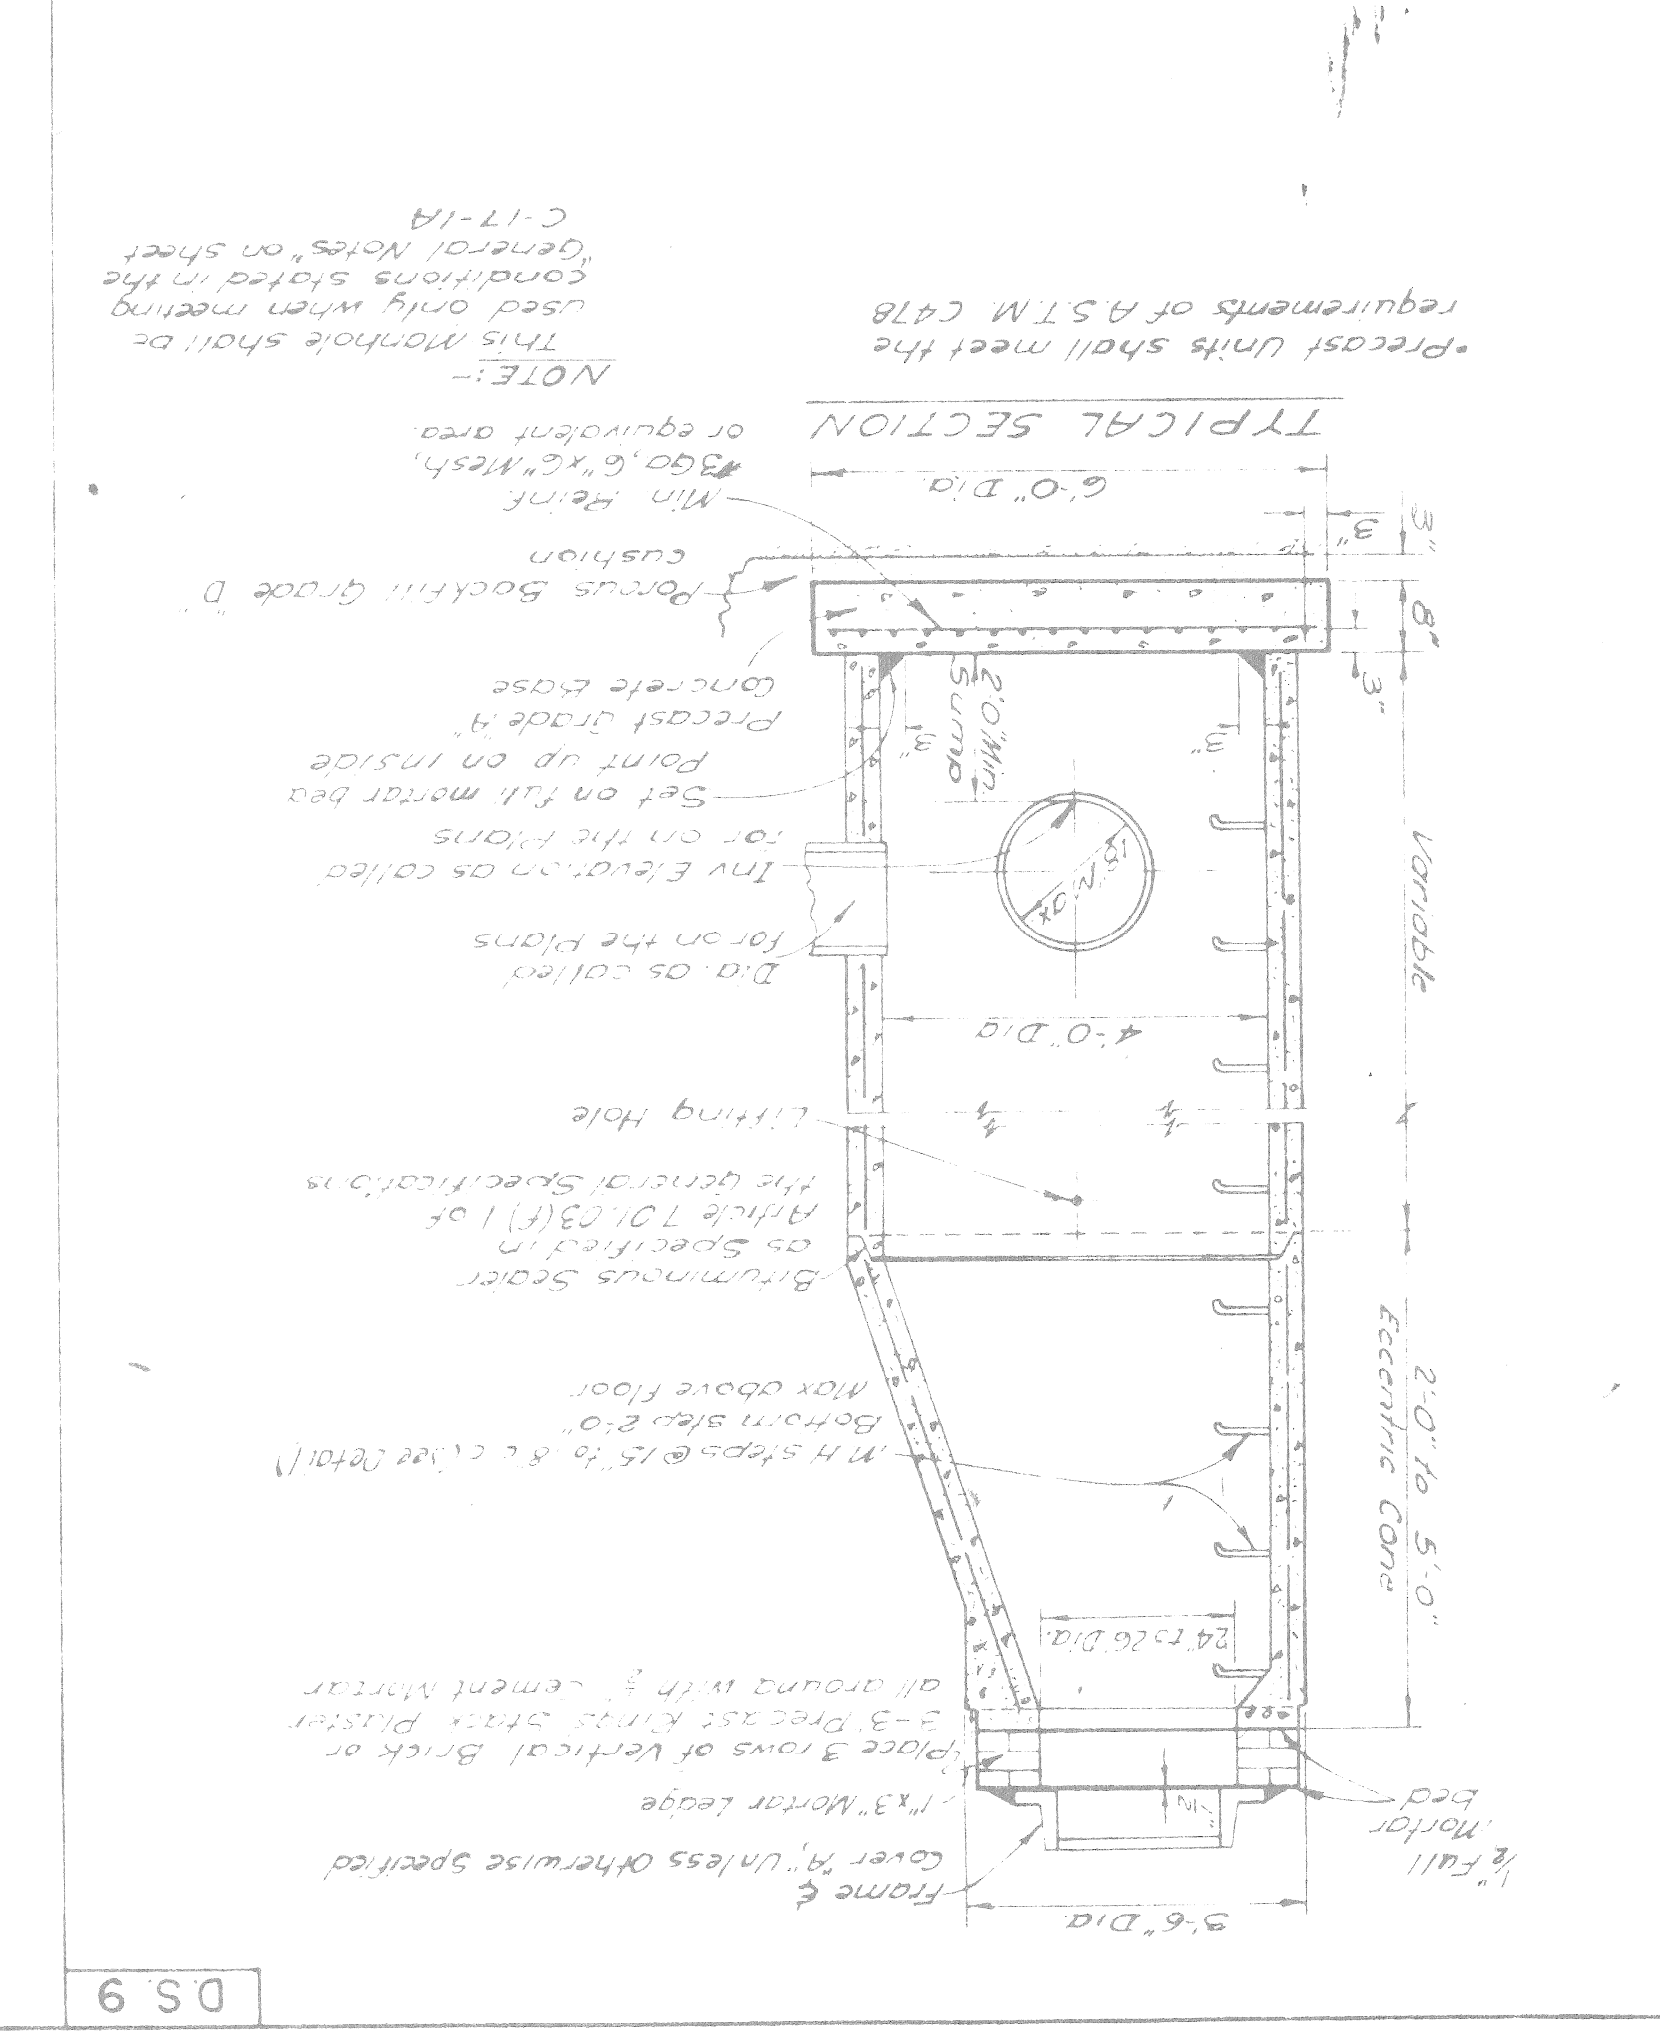 D.S. 9
3'-6" Dia
Frame &
Cover "A", Unless Otherwise Specified
1/2" Full
Mortar
bed
1"x3" Mortar Ledge
1/2"
Place 3 rows of Vertical Brick or
3-3" Precast Rings Stack Plaster
all around with 1/2" Cement Mortar
24" to 26" Dia.
2'-0" to 5'-0"
Eccentric Cone
M H steps @ 15" to 18" c c (see Detail)
Bottom step 2'-0"
Max above floor
Bituminous Sealer
as Specified in
Article 701.03(F) 1 of
the General Specifications
Lifting Hole
4'-0" Dia
Variable
Dia. as called
for on the Plans
18"
Inv Elevation as called
for on the Plans
2'0" Min.
Sump
Set on full mortar bed
Point up on inside
3"
3"
Precast Grade "A"
Concrete Base
3"
8"
Porous Backfill Grade "D"
cushion
3"
3"
Min Reinf.
#3Ga, 6"x6" Mesh,
or equivalent area.
6'-0" Dia.
TYPICAL SECTION
•Precast Units shall meet the
requirements of A.S.T.M C478
NOTE:-
This Manhole shall be
used only when meeting
conditions stated in the
"General Notes" on sheet
C-17-1A